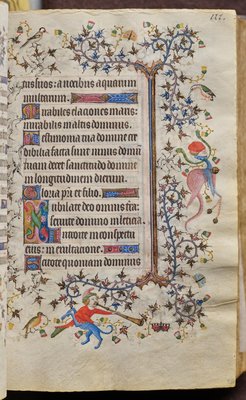 ctus suos: a vocibus aquarum
multarum.
Mirabiles elaciones maris:
mirabilis in altis dominus.
Testimonia tua domine cre
dibilia facta sunt nimis domum
tuam decet sanctitudo domine
in longitudinem dierum.
Gloria pri et filio.
Iubilate deo omnis terra:
servite domino in leticia.
Introite in conspectu
eius: in exultacione.
Scitote quoniam dominus